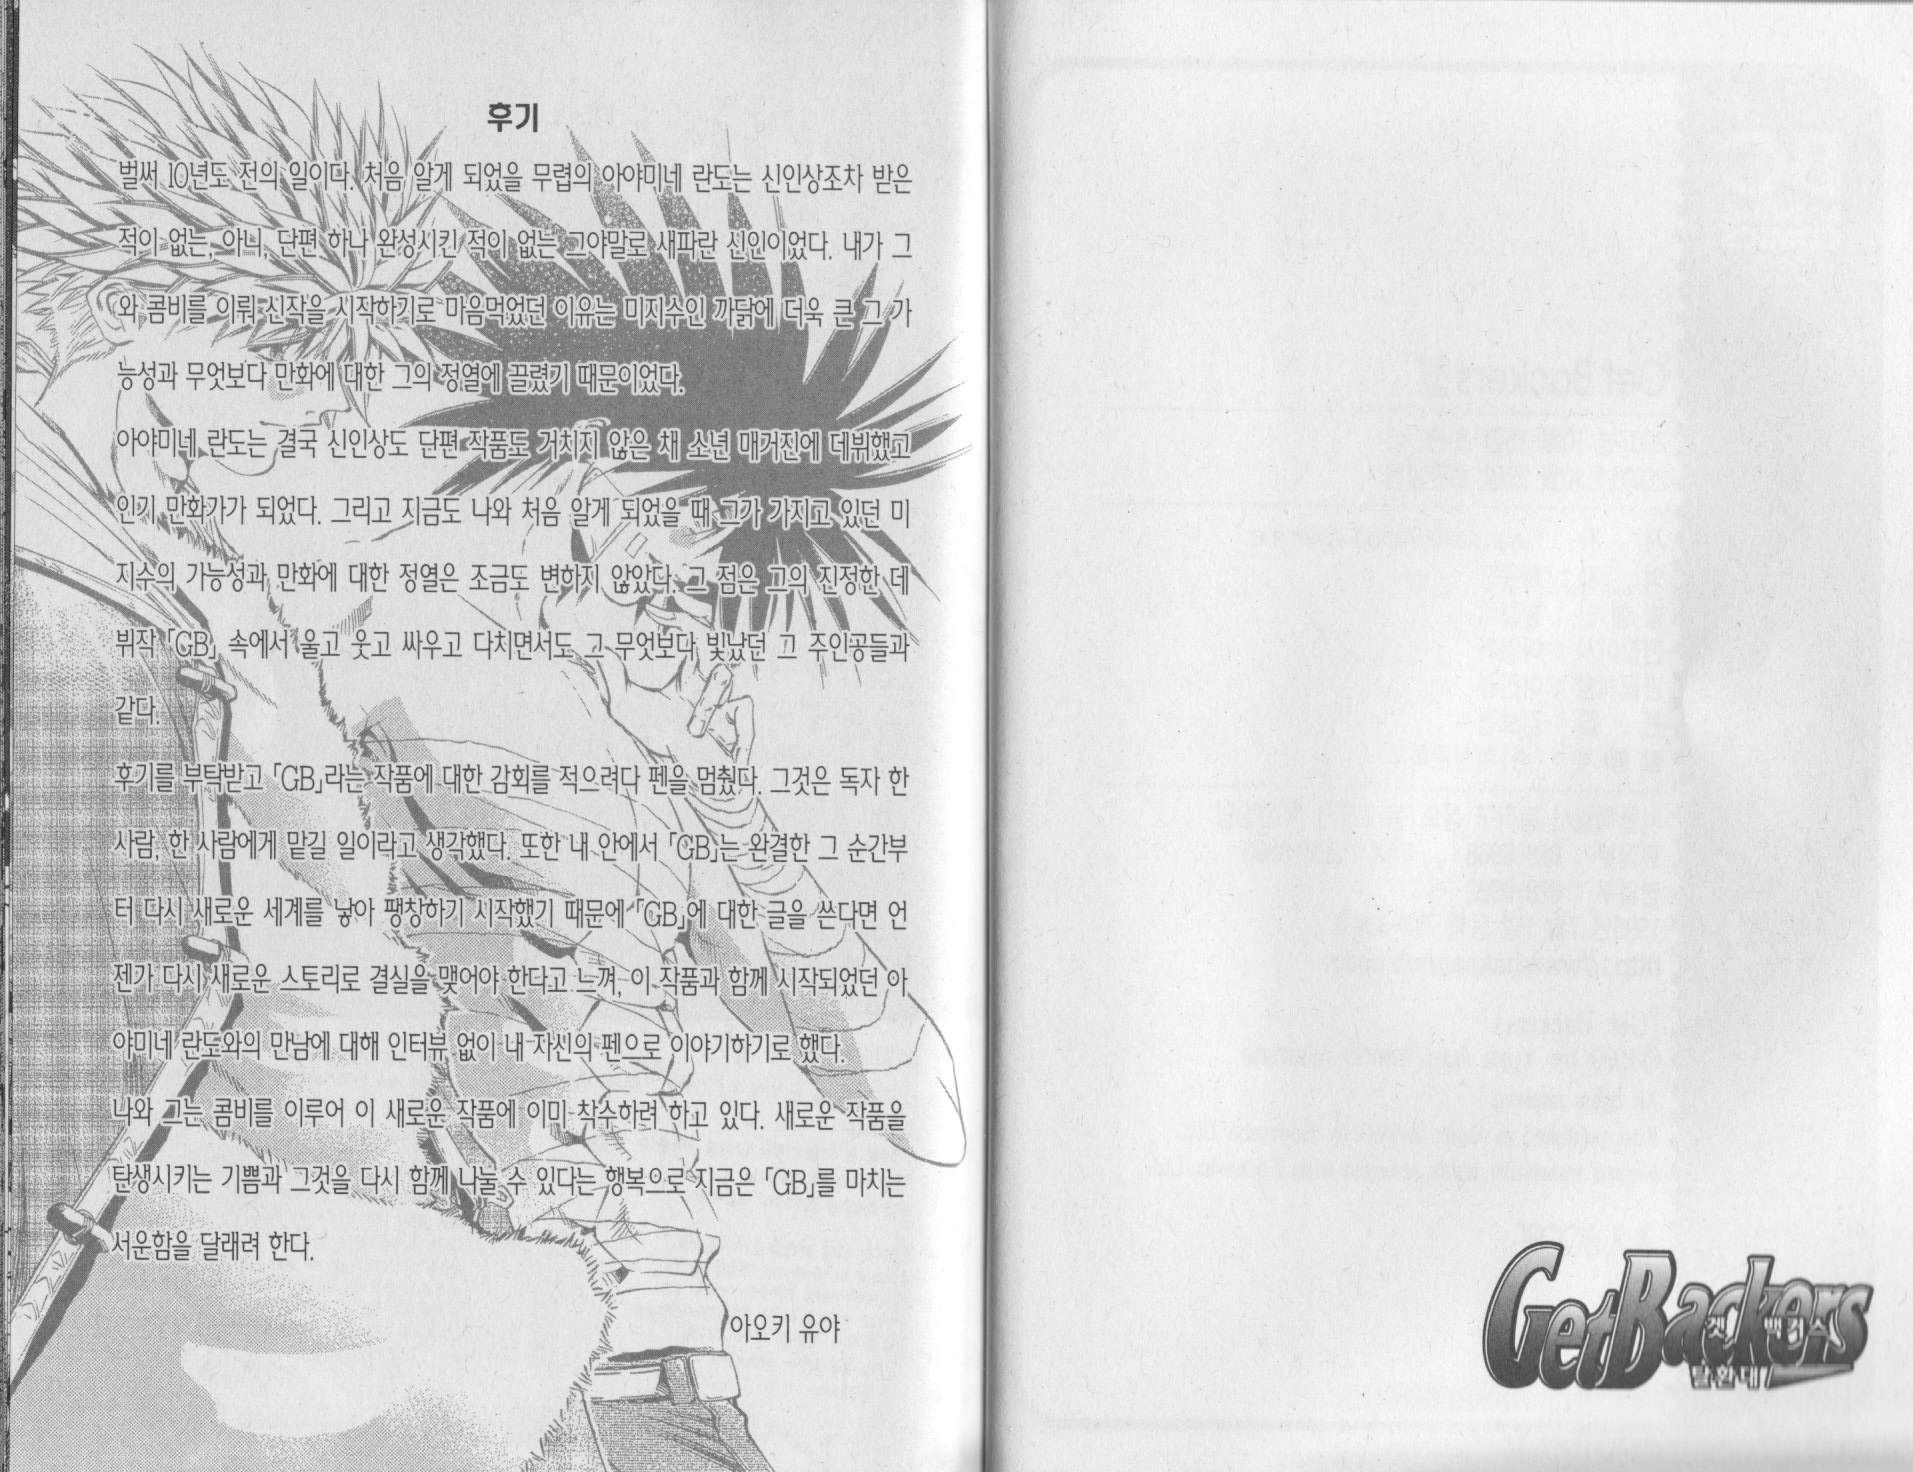 후기
벌써 10년도 전의 일이다. 처음 알게 되었을 무렵의 아야미네 란도는 신인상조차 받은
적이 없는, 아니, 단편 하나 완성시킨 적이 없는 그야말로 새파란 신인이었다. 내가 그
와 콤비를 이뤄 신작을 시작하기로 마음먹었던 이유는 미지수인 까닭에 더욱 큰 그 가
능성과 무엇보다 만화에 대한 그의 정열에 끌렸기 때문이었다.
아야미네 란도는 결국 신인상도 단편 작품도 거치지 않은 채 소년 매거진에 데뷔했고
인기 만화가가 되었다. 그리고 지금도 나와 처음 알게 되었을 때 그가 가지고 있던 미
지수의 가능성과 만화에 대한 정열은 조금도 변하지 않았다. 그 점은 그의 진정한 데
뷔작 「GB」 속에서 울고 웃고 싸우고 다치면서도 그 무엇보다 빛났던 그 주인공들과
같다.
후기를 부탁받고 「GB」라는 작품에 대한 감회를 적으려다 펜을 멈췄다. 그것은 독자 한
사람, 한 사람에게 맡길 일이라고 생각했다. 또한 내 안에서 「GB」는 완결한 그 순간부
터 다시 새로운 세계를 낳아 팽창하기 시작했기 때문에 「GB」에 대한 글을 쓴다면 언
젠가 다시 새로운 스토리로 결실을 맺어야 한다고 느껴, 이 작품과 함께 시작되었던 아
야미네 란도와의 만남에 대해 인터뷰 없이 내 자신의 펜으로 이야기하기로 했다.
나와 그는 콤비를 이루어 이 새로운 작품에 이미 착수하려 하고 있다. 새로운 작품을
탄생시키는 기쁨과 그것을 다시 함께 나눌 수 있다는 행복으로 지금은 「GB」를 마치는
서운함을 달래려 한다.
아오키 유야
GetBackers
겟 백커스
탈환대